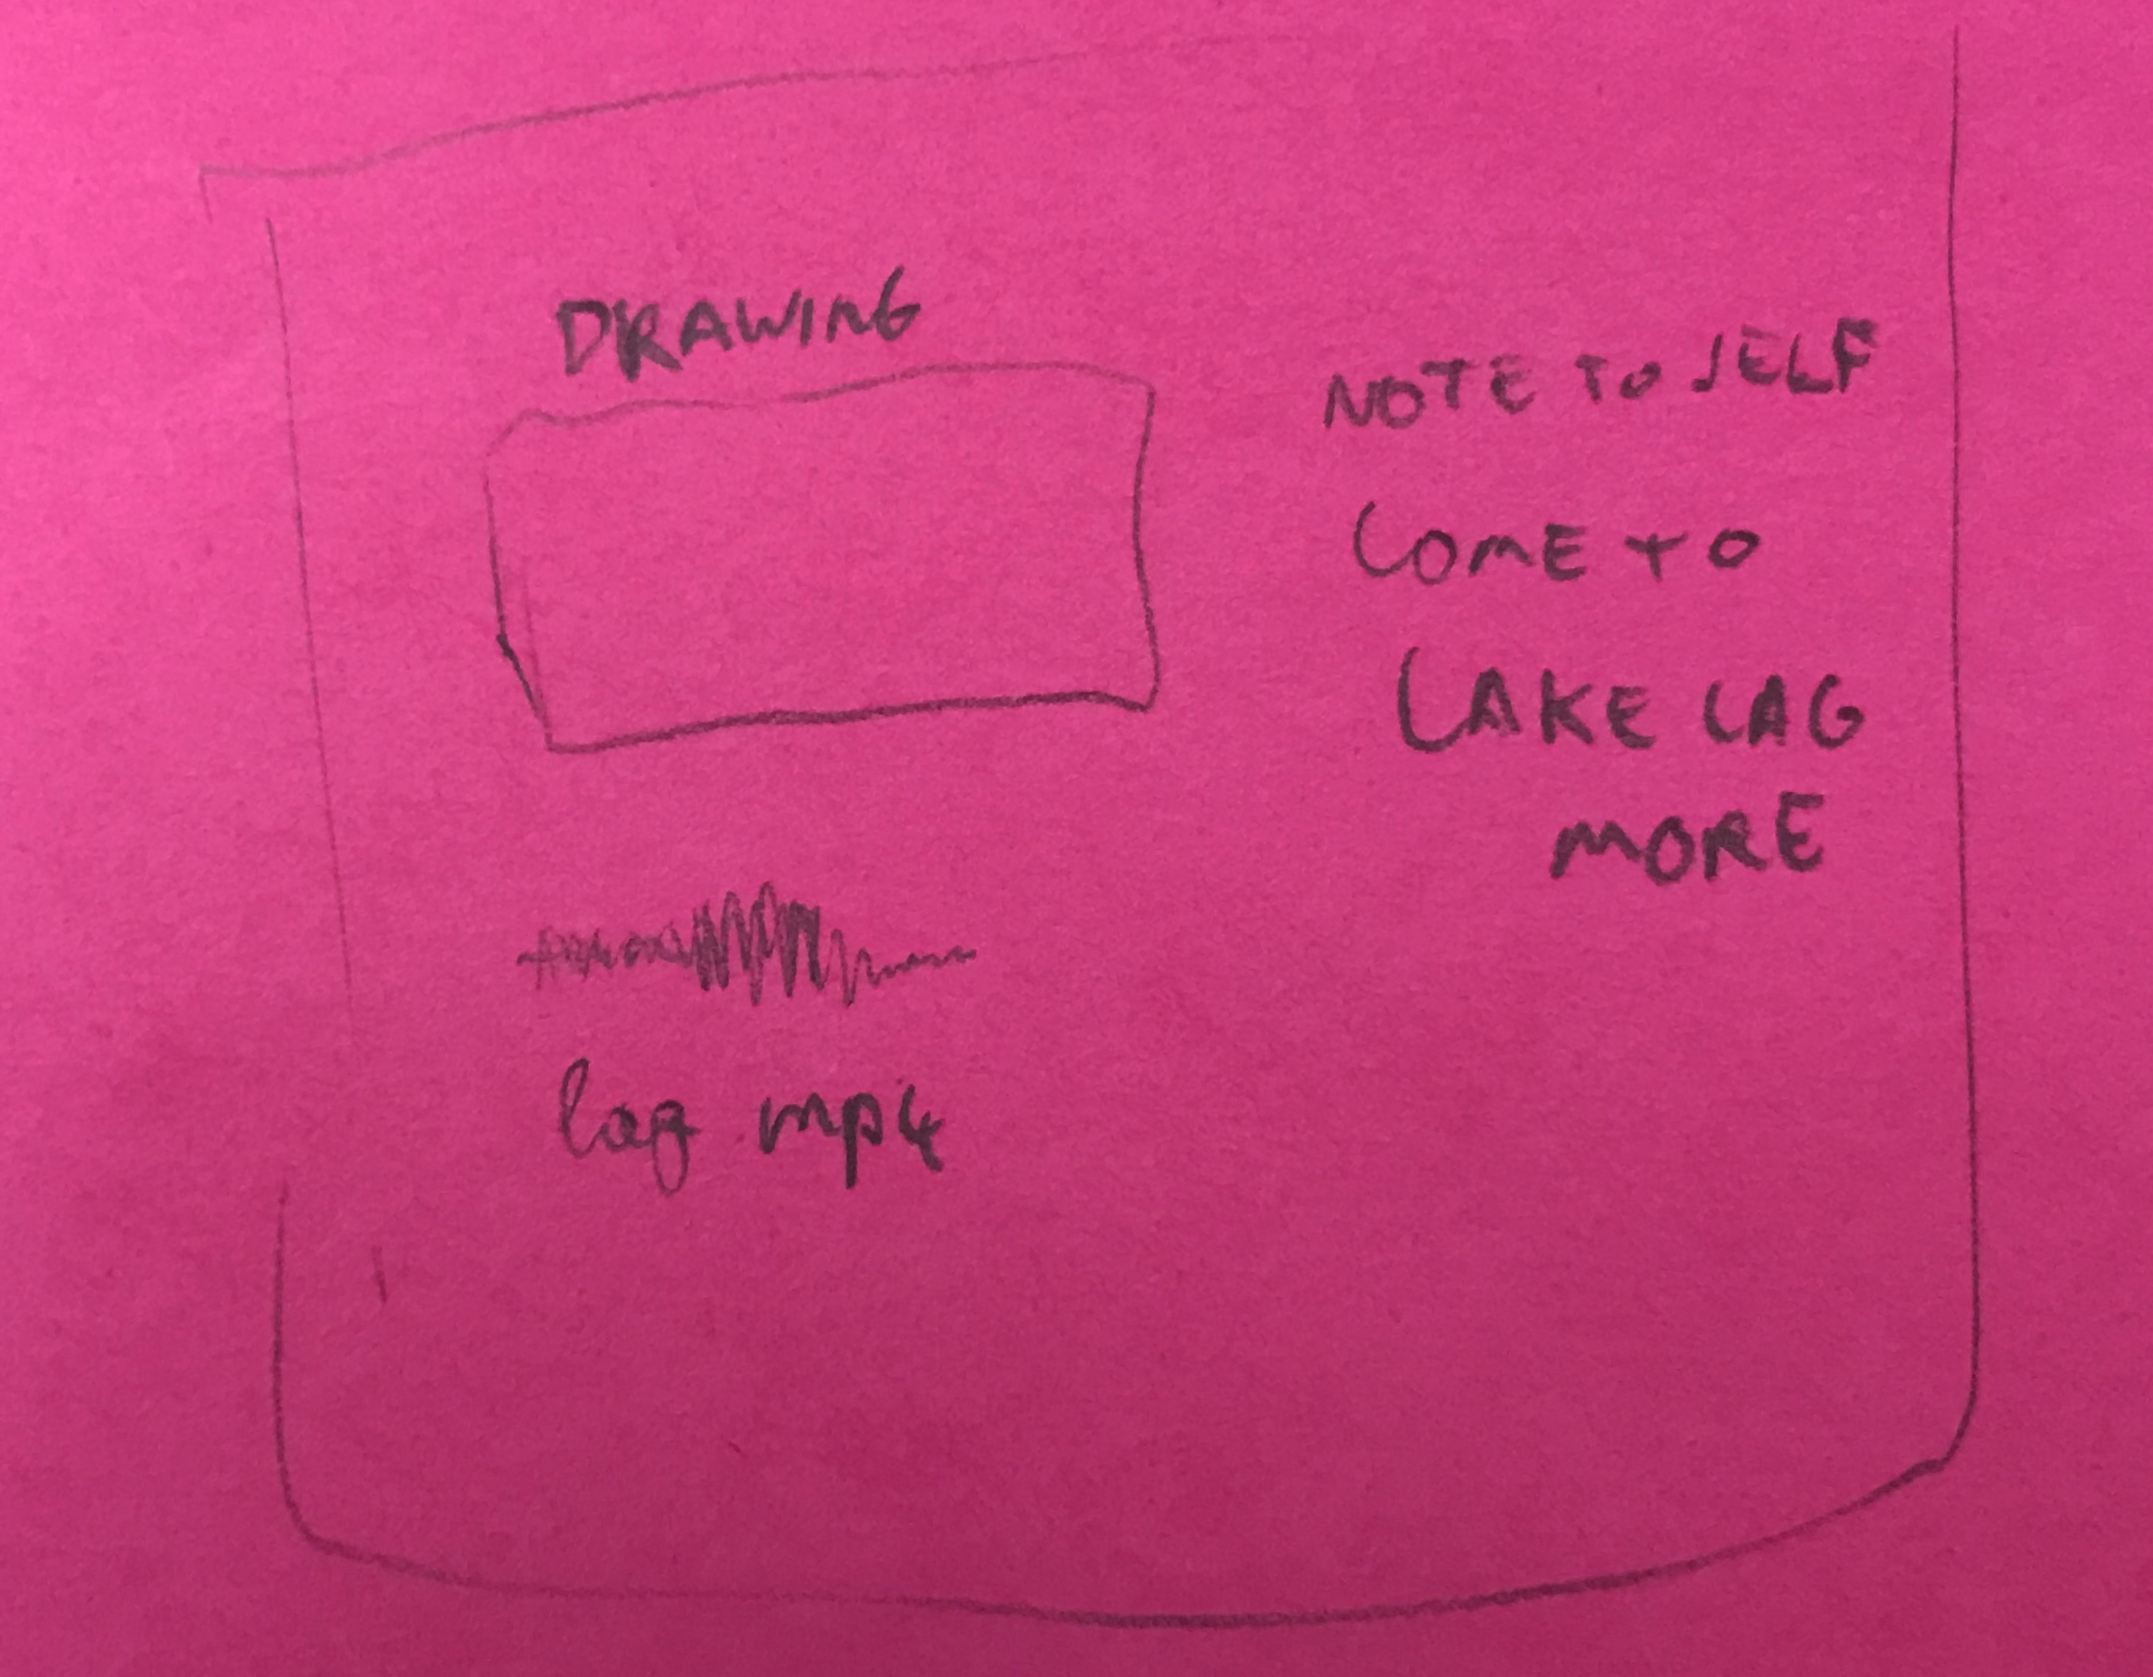 DRAWING
NOTE TO SELF
COME TO
LAKE LAG
MORE
lag mp4